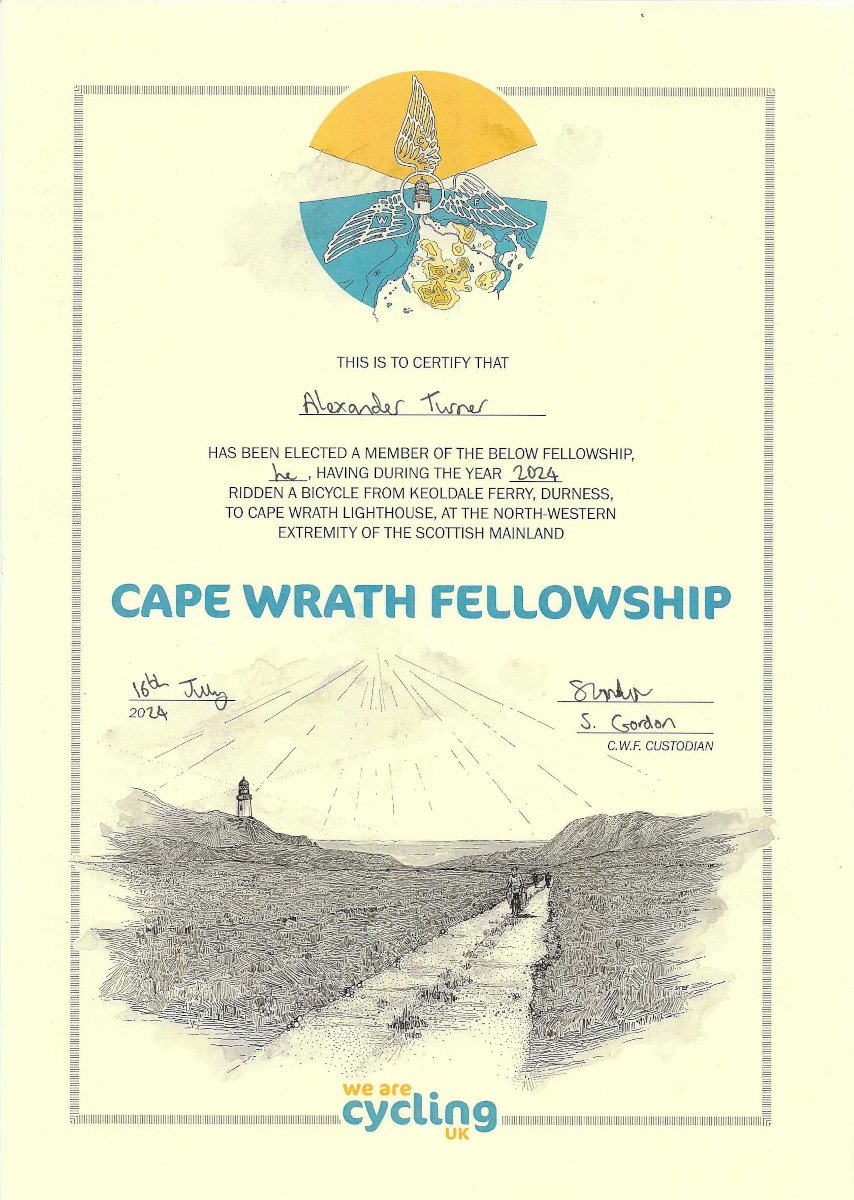 C
W
F
THIS IS TO CERTIFY THAT
Alexander Turner
HAS BEEN ELECTED A MEMBER OF THE BELOW FELLOWSHIP,
he, HAVING DURING THE YEAR 2024
RIDDEN A BICYCLE FROM KEOLDALE FERRY, DURNESS,
TO CAPE WRATH LIGHTHOUSE, AT THE NORTH-WESTERN
EXTREMITY OF THE SCOTTISH MAINLAND
CAPE WRATH FELLOWSHIP
16th July
2024
S. Gordon
C.W.F. CUSTODIAN
STEF
we are
cycling
UK